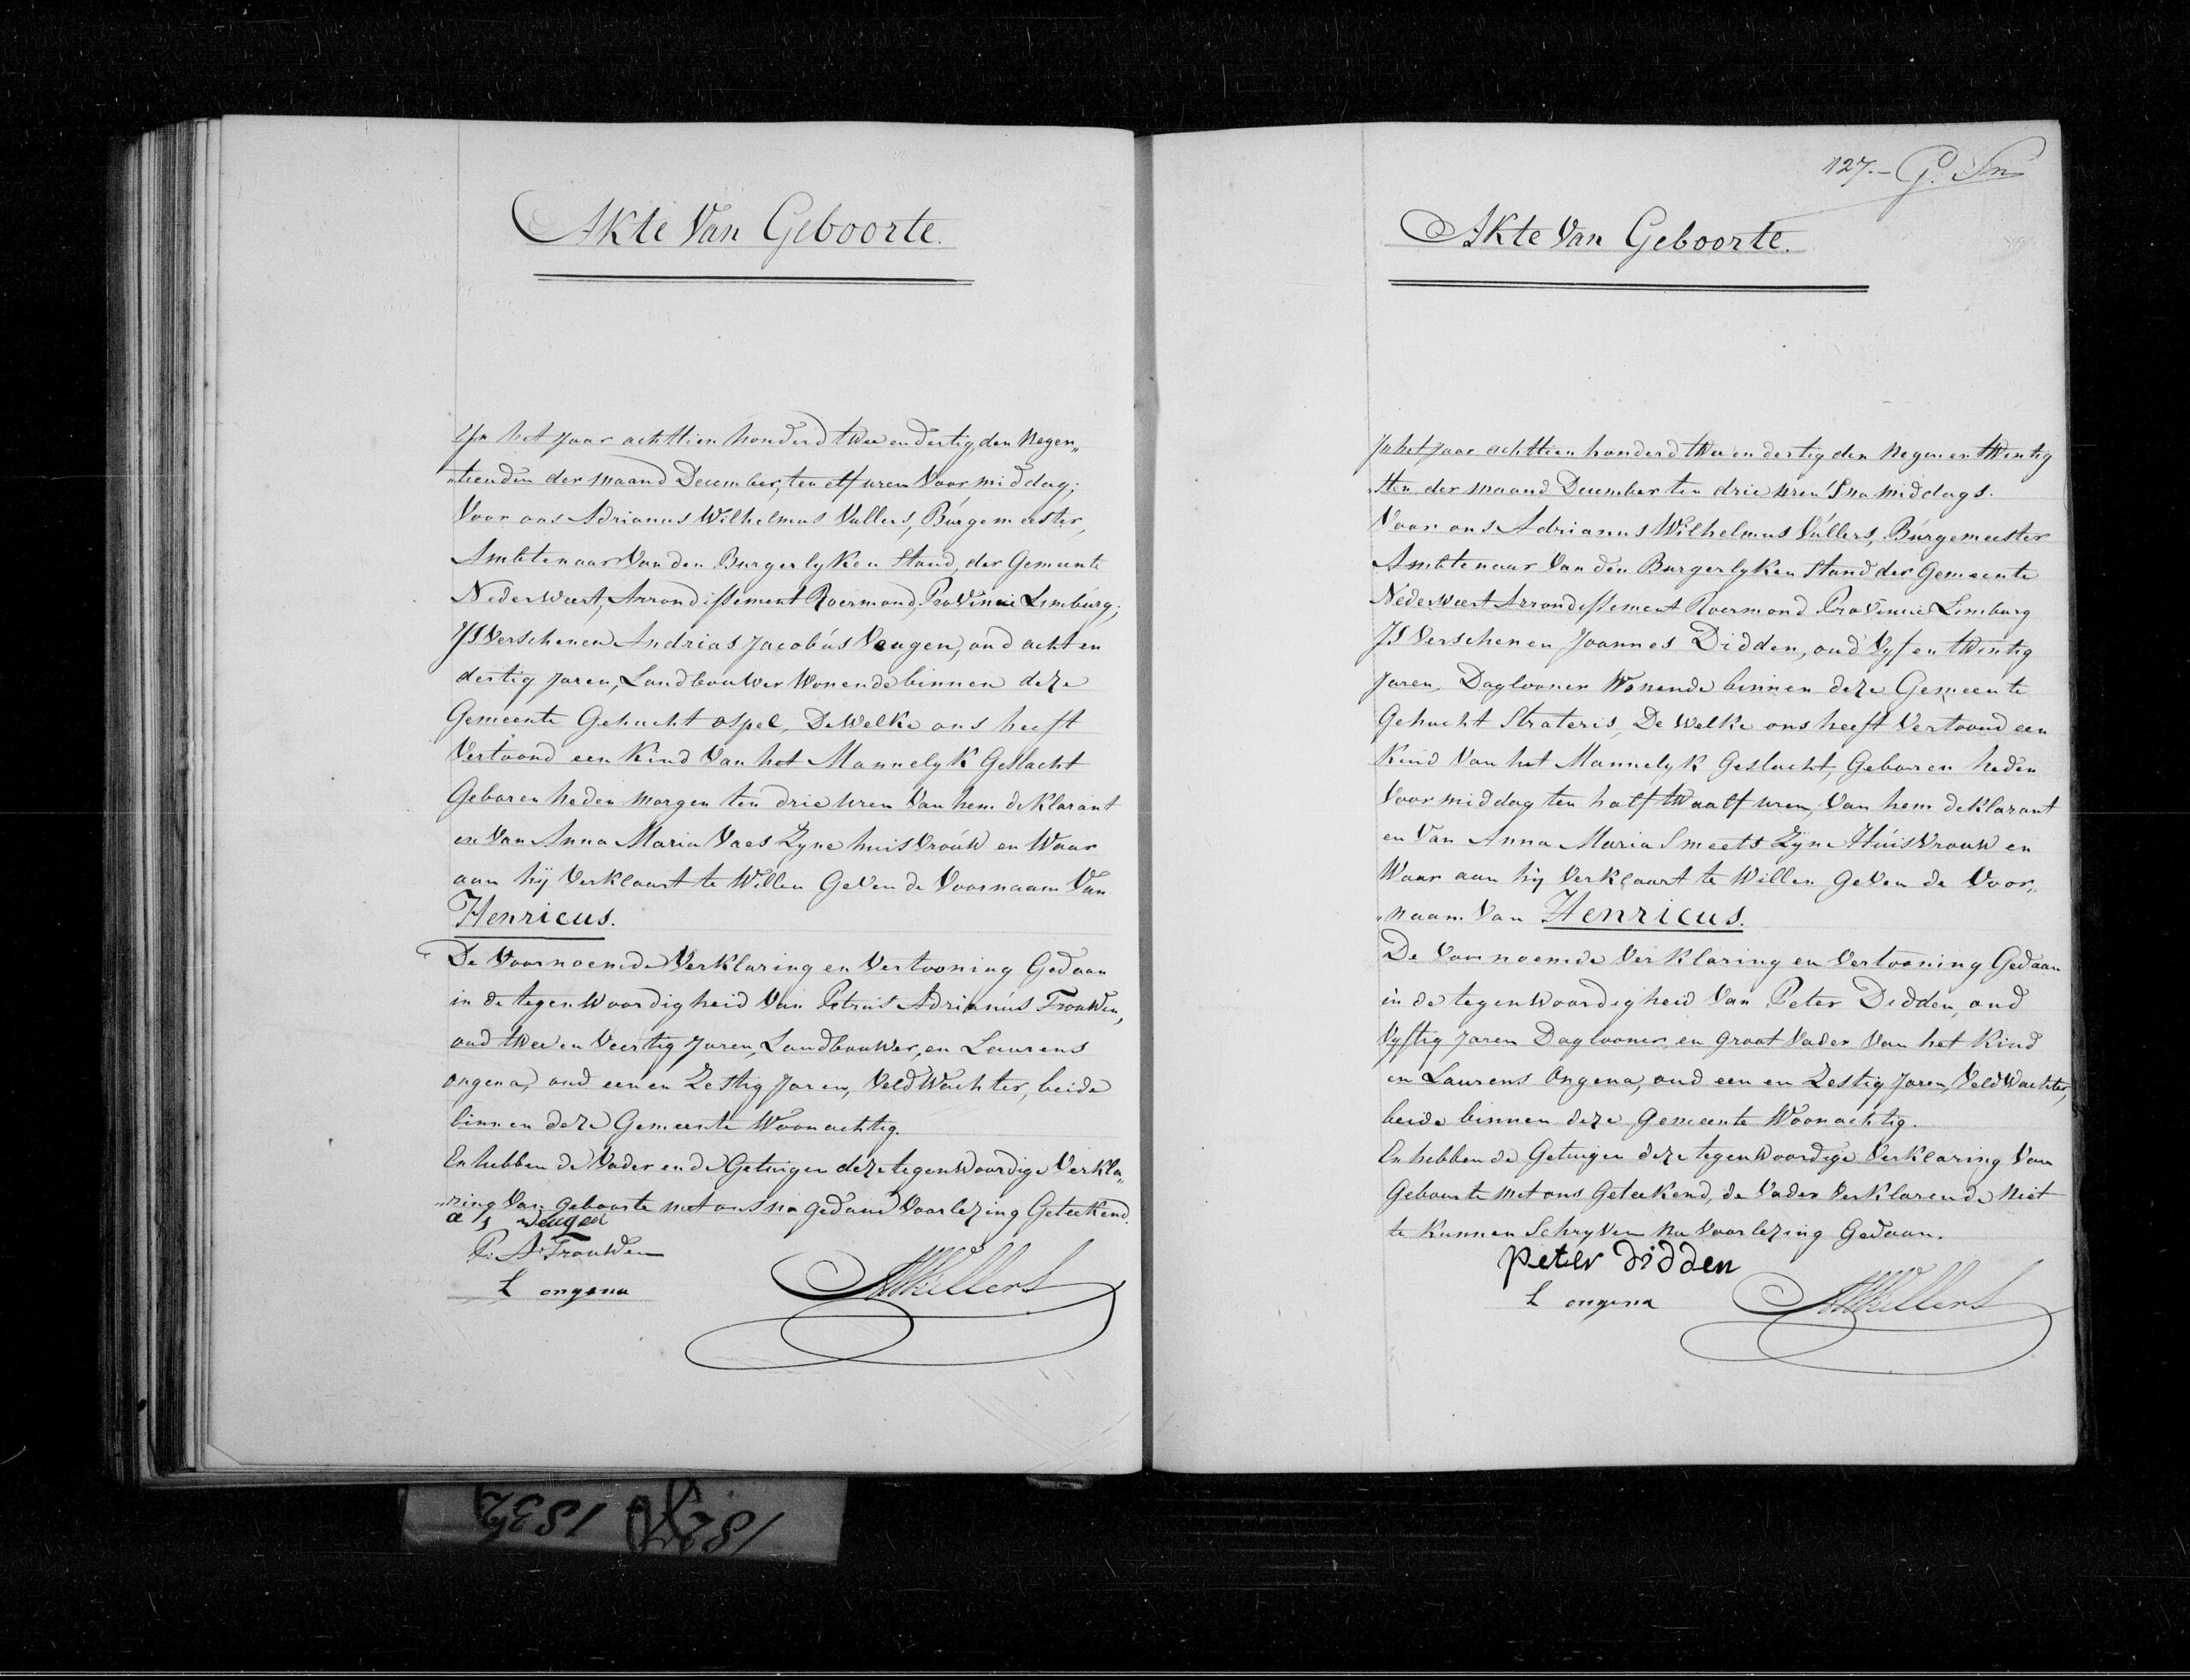 Akte Van Geboorte.
In het Jaar achttien honderd twee en dertig, den Negen„
„tienden der maand December, ten elf uren Voormiddag;
Voor ons Adrianus Wilhelmus Vullers, Burgemeester,
Ambtenaar Van den Burgerlyken Stand, der Gemeente
Nederweert, Arrondissement Roermond, Provincie Limburg;
Is Verschenen Andrias Jacobus Veugen, oud acht en
dertig Jaren, Landbouwer Wonende binnen deze
Gemeente Gehucht ospel, De Welke ons heeft
Vertoond een Kind Van het Mannelyk Geslacht
Geboren heden morgen ten drie uren Van hem deklarant
en Van Anna Maria Vaes Zyne huisvrouw en Waar
aan hij Verklaart te Willen Geven de Voornaam Van
Henricus.
De Voornoemde Verklaring en Vertooning Gedaan
in de tegenwoordigheid Van Petrus Adrianus Trouwen,
oud twee en Veertig Jaren, Landbouwer, en Laurens
ongena, oud een en Zestig Jaren, VeldWachter, beide
binnen deze Gemeente Woonachtig.
En hebben de Vader en de Getuigen deze tegenwoordige Verkla„
„ring Van geboorte met ons na gedane Voorlezing Geteekend.
a J veugen
P: A: Trouwen
L ongena
AWVullers
127.- G.
Akte Van Geboorte.
In het Jaar achttien honderd twee en dertig den Negen en twintig
„sten der maand December ten drie uren S'na middags.
Voor ons Adrianus Wilhelmus Vullers, Burgemeester
Ambtenaar Van den Burgerlyken Stand der Gemeente
Nederweert Arrondissement Roermond Provincie Limburg
Is Verschenen Joannes Didden, oud Vyf en twintig
Jaren, Daglooner Wonende binnen deze Gemeente
Gehucht Strateris, De Welke ons heeft Vertoond een
Kind Van het Mannelyk Geslacht, Geboren heden
Voormiddag ten half twaalf uren, Van hem deklarant
en Van Anna Maria Smeets Zyne Huisvrouw en
Waar aan hij Verklaart te Willen Geven de Voor„
„naam Van Henricus.
De Voornoemde Verklaring en Vertooning Gedaan
in de tegenwoordigheid Van Peter Didden, oud
Vyftig Jaren Daglooner en Groot Vader Van het Kind
en Laurens Ongena, oud een en Zestig Jaren, VeldWachter,
beide binnen deze Gemeente Woonachtig.
En hebben de Getuigen deze tegenwoordige Verklaring Van
Geboorte met ons Geteekend, de Vader Verklarende Niet
te Kunnen Schryven Na Voorlezing Gedaan.
Peter Didden
L ongena
AWVullers
1832